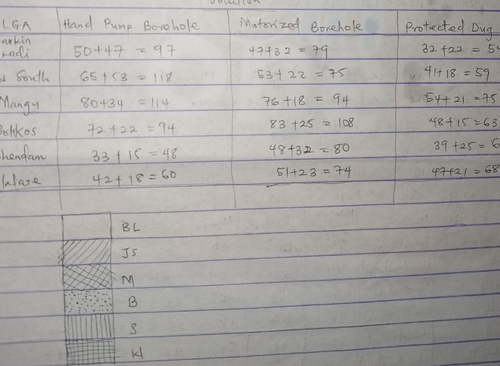 LGA Hand Pump Borehole Motorized Borehole Protected Dug
arkin
adi 50+47 = 97 47+32 = 79 32+22 = 54
South 65+53 = 118 53+22 = 75 41+18 = 59
Mangu 80+34 = 114 76+18 = 94 54+21 = 75
Bokkos 72+22 = 94 83+25 = 108 48+15 = 63
hendam 33+15 = 48 48+32 = 80 39+25 = 6
alase 42+18 = 60 51+23 = 74 47+21 = 68
BL
JS
M
B
S